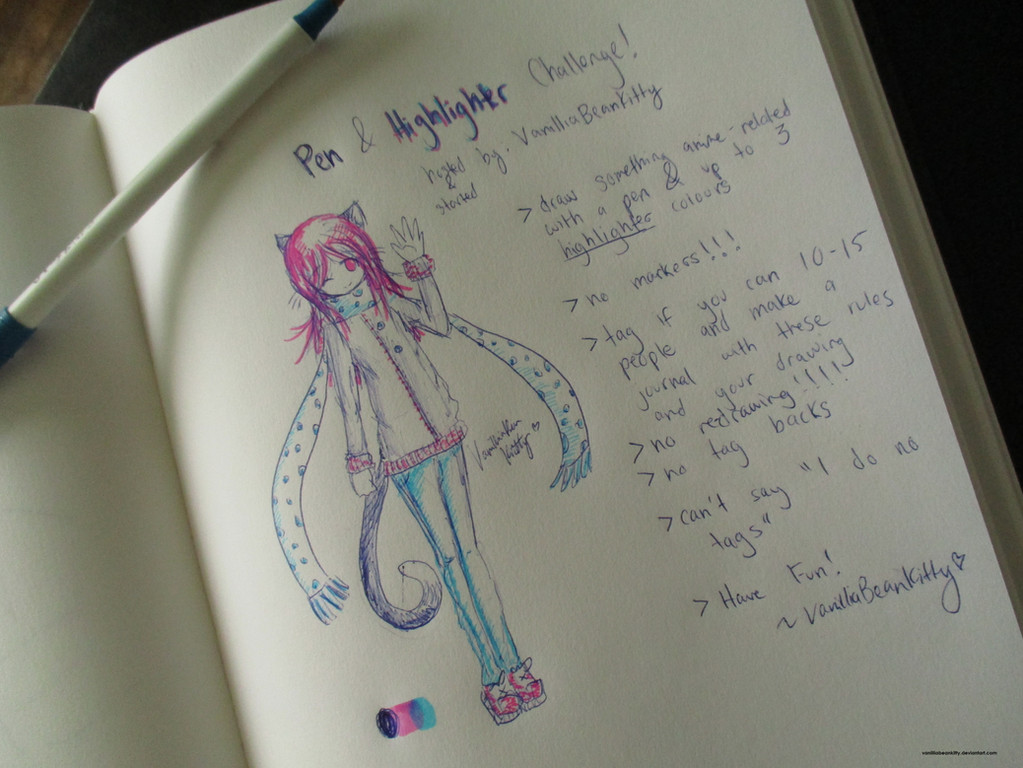 Pen & Highlighter Challenge!
hosted by: VanilliaBeanKitty
&
started
> draw something anime-related
with a pen & up to 3
highlighter colours
> no markers!!!
> tag if you can 10-15
people and make a
journal with these rules
and your drawing
> no redrawing!!!!!
> no tag backs
> can't say "I do no
tags"
> Have Fun!
~ VanilliaBeanKitty♡
Kitty ♡
vanilliabeankitty.deviantart.com